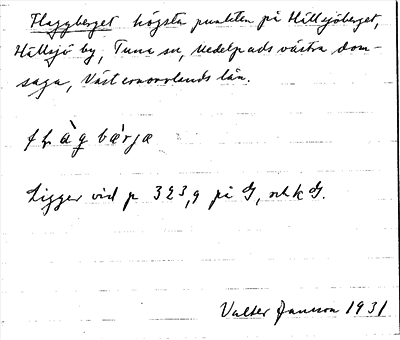 Flaggberget högsta punkten på Hällsjöberget,
Hällsjö by, Tuna sn, Medelpads västra dom-
saga, Västernorrlands län.
flàg bæ̀rjæ
Ligger vid p 323,9 på G, och k G.
Valter Jansson 1931